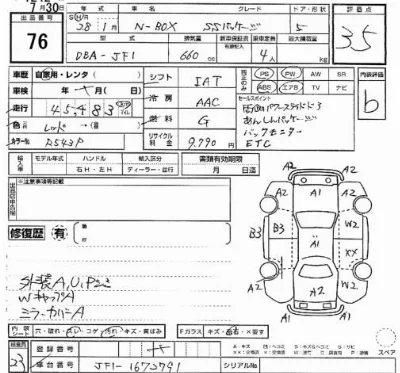 7月30日
出品番号 76
車名 グレード ドア・形状 評価点
28・1月 N-BOX SSパッケージ 5 3.5
型式 排気量 乗車定員 最大積載量
DBA-JF1 660 cc 4人
車歴 自家用・レンタ シフト IAT
PS PW AW SR
ABS エアB TV ナビ
内装評価 b
車検 年 月 冷房 AAC
セールスポイント
走行 45,483 燃料 G
両側パワースライドドア
あんしんパッケージ
色 レッド リサイクル料金 9,790 円
バックモニター
カラーNo. R543P ETC
輸入車 モデル年式 ハンドル 輸入区分 書類有効期限
年 右H・左H ディーラー・並行 月 日迄
※注意事項等記載
修復歴 有
外装A,U,Pえくぼ
WキャップA
ミラーカバーA
A2 A1 A2
B3 B3 A1 A1 W2
XX W2
A2 A2 A2
内装シート 穴・破れ・コゲ・汚れ・キズ・黄ばみ Fガラス キズ・×要す
スペア
登録番号
23 車台番号 JF1-1673791 シリアルNo.